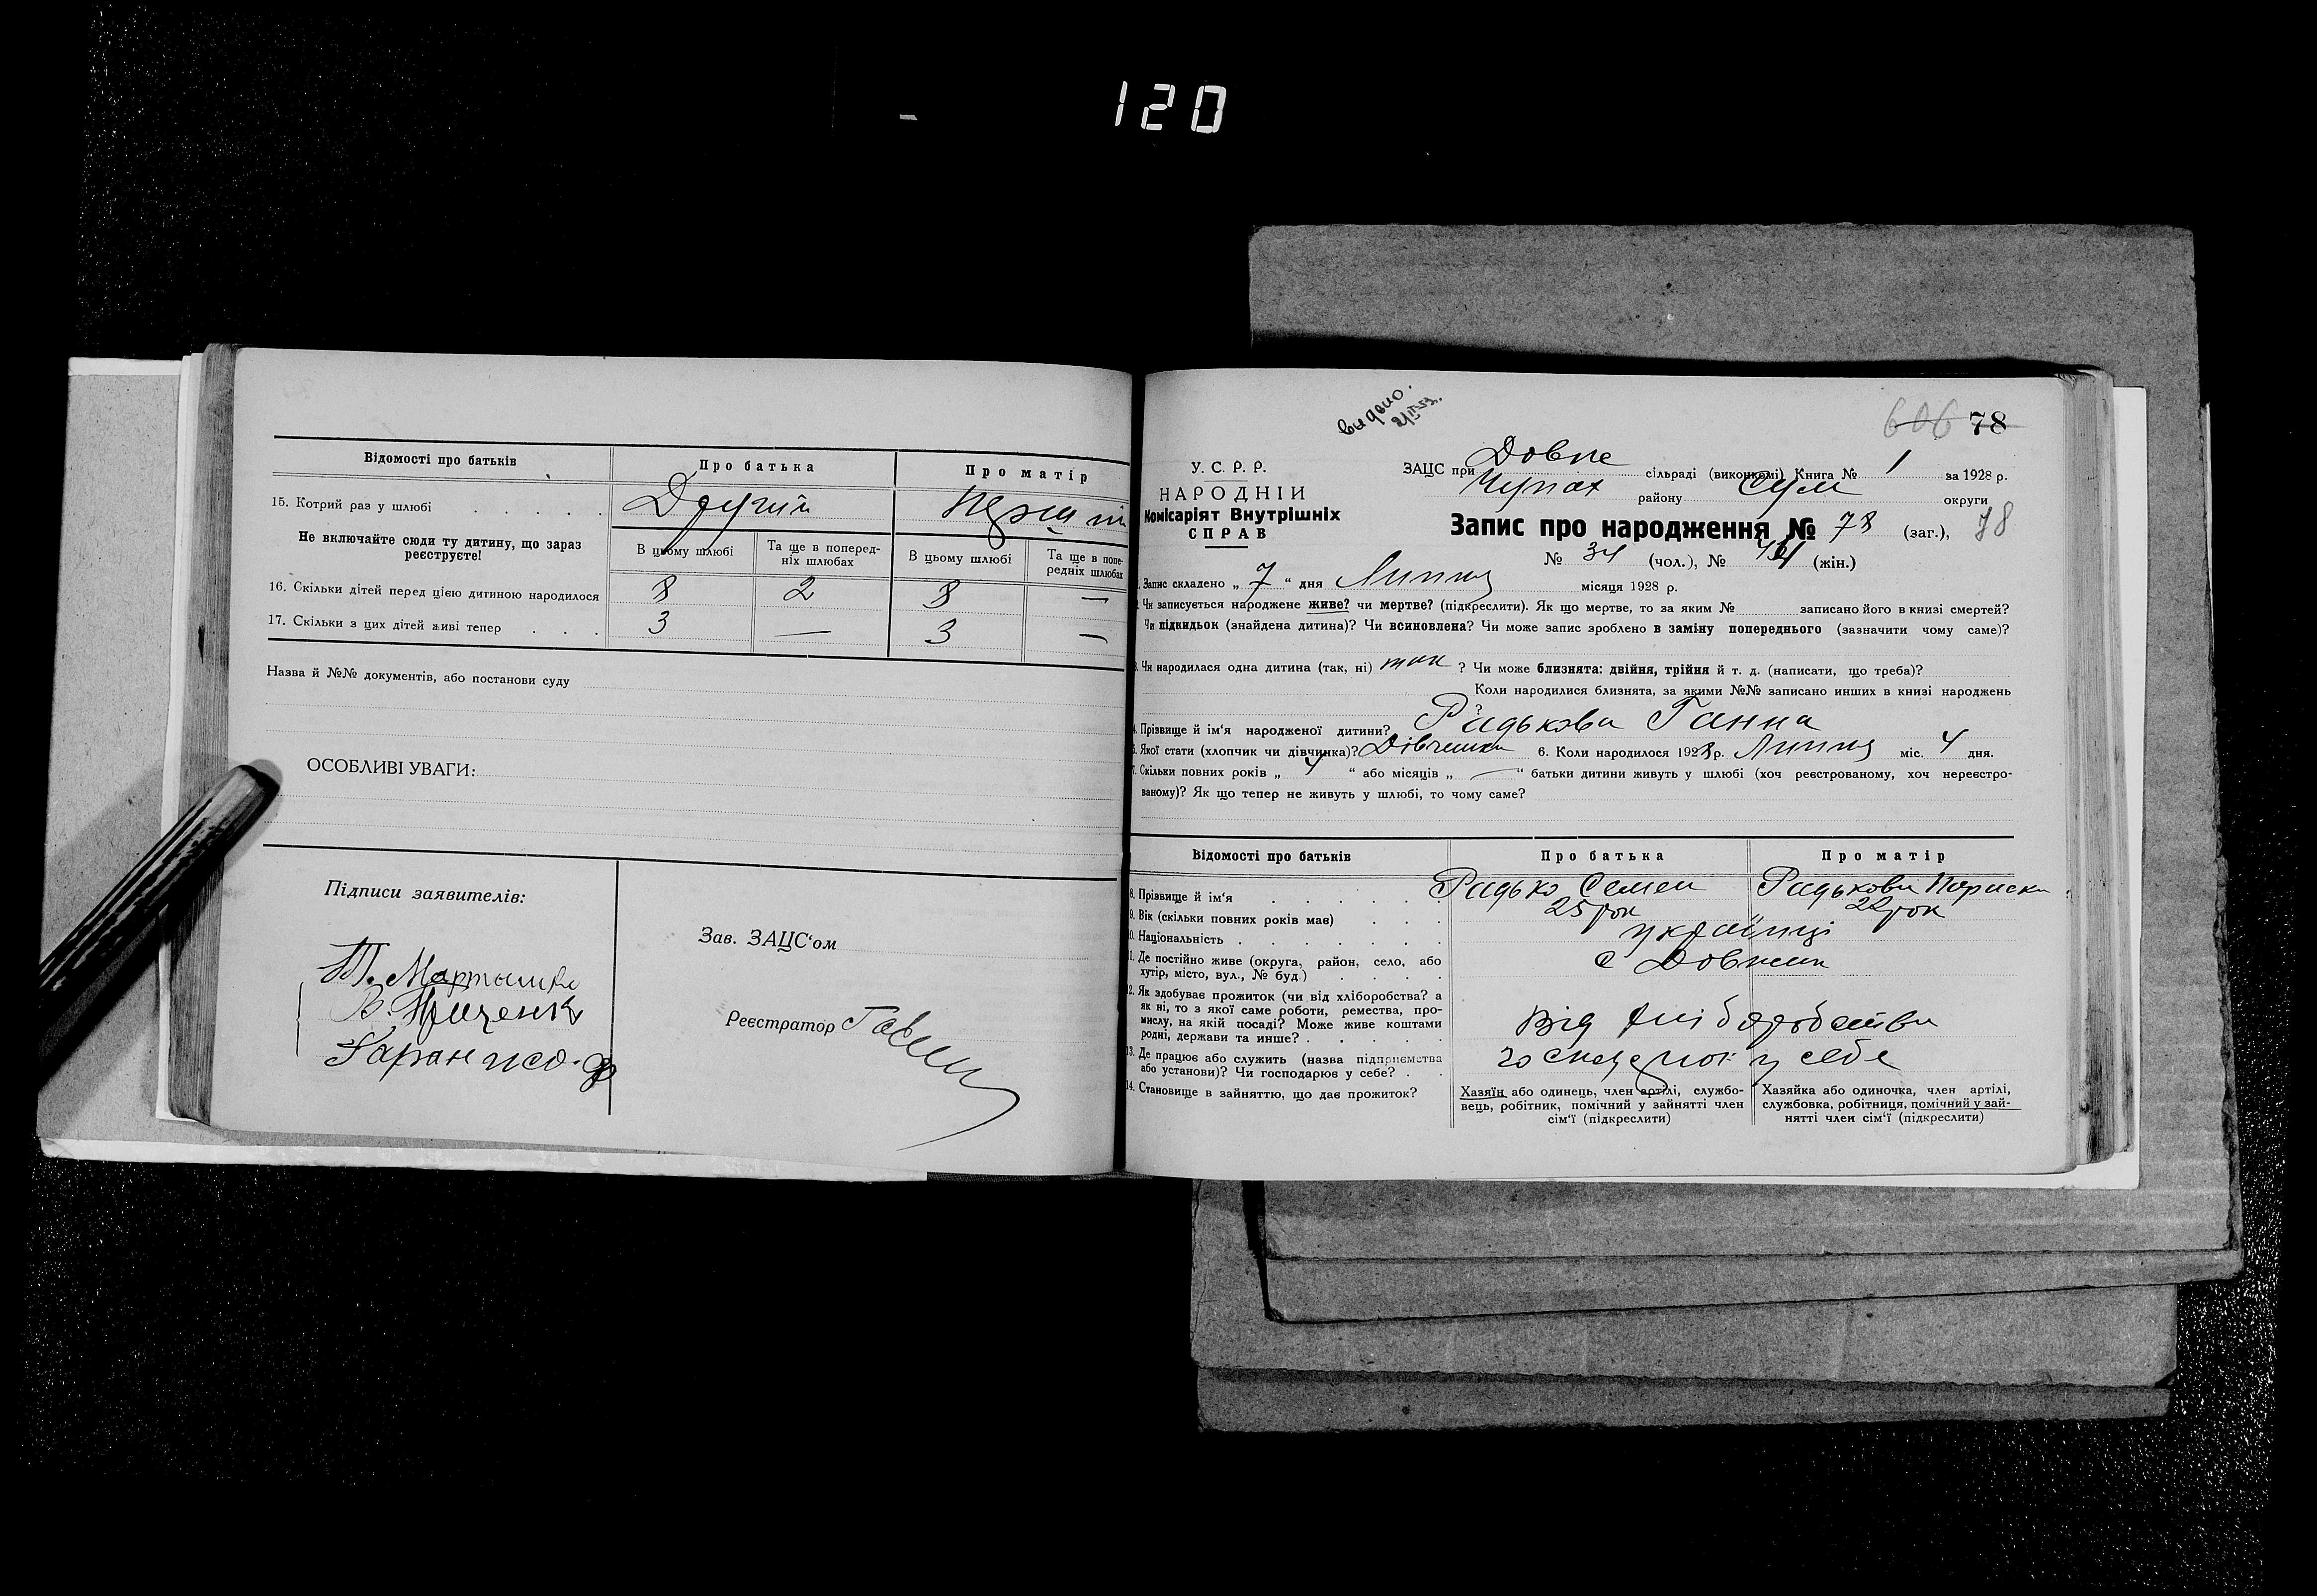 120
Відомості про батьків Про батька Про матір
15. Котрий раз у шлюбі Другий
Не включайте сюди ту дитину, що зараз реєструєте!
В цьому шлюбі Та ще в поперед-ніх шлюбах В цьому шлюбі Та ще в попе-редніх шлюбах
16. Скільки дітей перед цією дитиною народилося 8 2 8 —
17. Скільки з цих дітей живі тепер 3 — 3 —
Назва й №№ документів, або постанови суду
ОСОБЛИВІ УВАГИ:
Підписи заявителів:
Зав. ЗАЦС'ом
В. Гриценко
Реєстратор
видано.
606 78
У. С. Р. Р.
НАРОДНІЙ
Комісаріят Внутрішніх
СПРАВ
ЗАЦС при Довпе сільраді (виконкомі) Книга № 1 за 1928 р.
Чупах району Сум округи
Запис про народження № 78 (заг.), 78
№ 34 (чол.), № 44 (жін.)
1. Запис складено „ 7 " дня Липня місяця 1928 р.
2. Чи записується народжене живе? чи мертве? (підкреслити). Як що мертве, то за яким № записано його в книзі смертей?
Чи підкидьок (знайдена дитина)? Чи всиновлена? Чи може запис зроблено в заміну попереднього (зазначити чому саме)?
3. Чи народилася одна дитина (так, ні) так ? Чи може близнята: двійня, трійня й т. д. (написати, що треба)?
Коли народилися близнята, за якими №№ записано инших в книзі народжень
?
4. Прізвище й ім'я народженої дитини? Радькова Ганна
5. Якої стати (хлопчик чи дівчинка)? Дівчинка 6. Коли народилося 1928 р. Липня міс. 4 дня.
7. Скільки повних років „ 4 " або місяців „ — " батьки дитини живуть у шлюбі (хоч реєстрованому, хоч нереєстро-
ваному)? Як що тепер не живуть у шлюбі, то чому саме?
Відомості про батьків Про батька Про матір
8. Прізвище й ім'я Радько Семен Радькова Париска
9. Вік (скільки повних років має) 25 рок 22 рок
10. Національність українці
11. Де постійно живе (округа, район, село, або
хутір, місто, вул., № буд.) с
12. Як здобуває прожиток (чи від хліборобства? а
як ні, то з якої саме роботи, ремества, про-
мислу, на якій посаді? Може живе коштами
родні, держави та инше? Від хліборобства
13. Де працює або служить (назва підприємства
або установи)? Чи господарює у себе? у себе
14. Становище в зайняттю, що дає прожиток?
Хазяїн або одинець, член артілі, службо-
вець, робітник, помічний у зайнятті член
сім'ї (підкреслити)
Хазяйка або одиночка, член артілі,
службовка, робітниця, помічний у зай-
нятті член сім'ї (підкреслити)